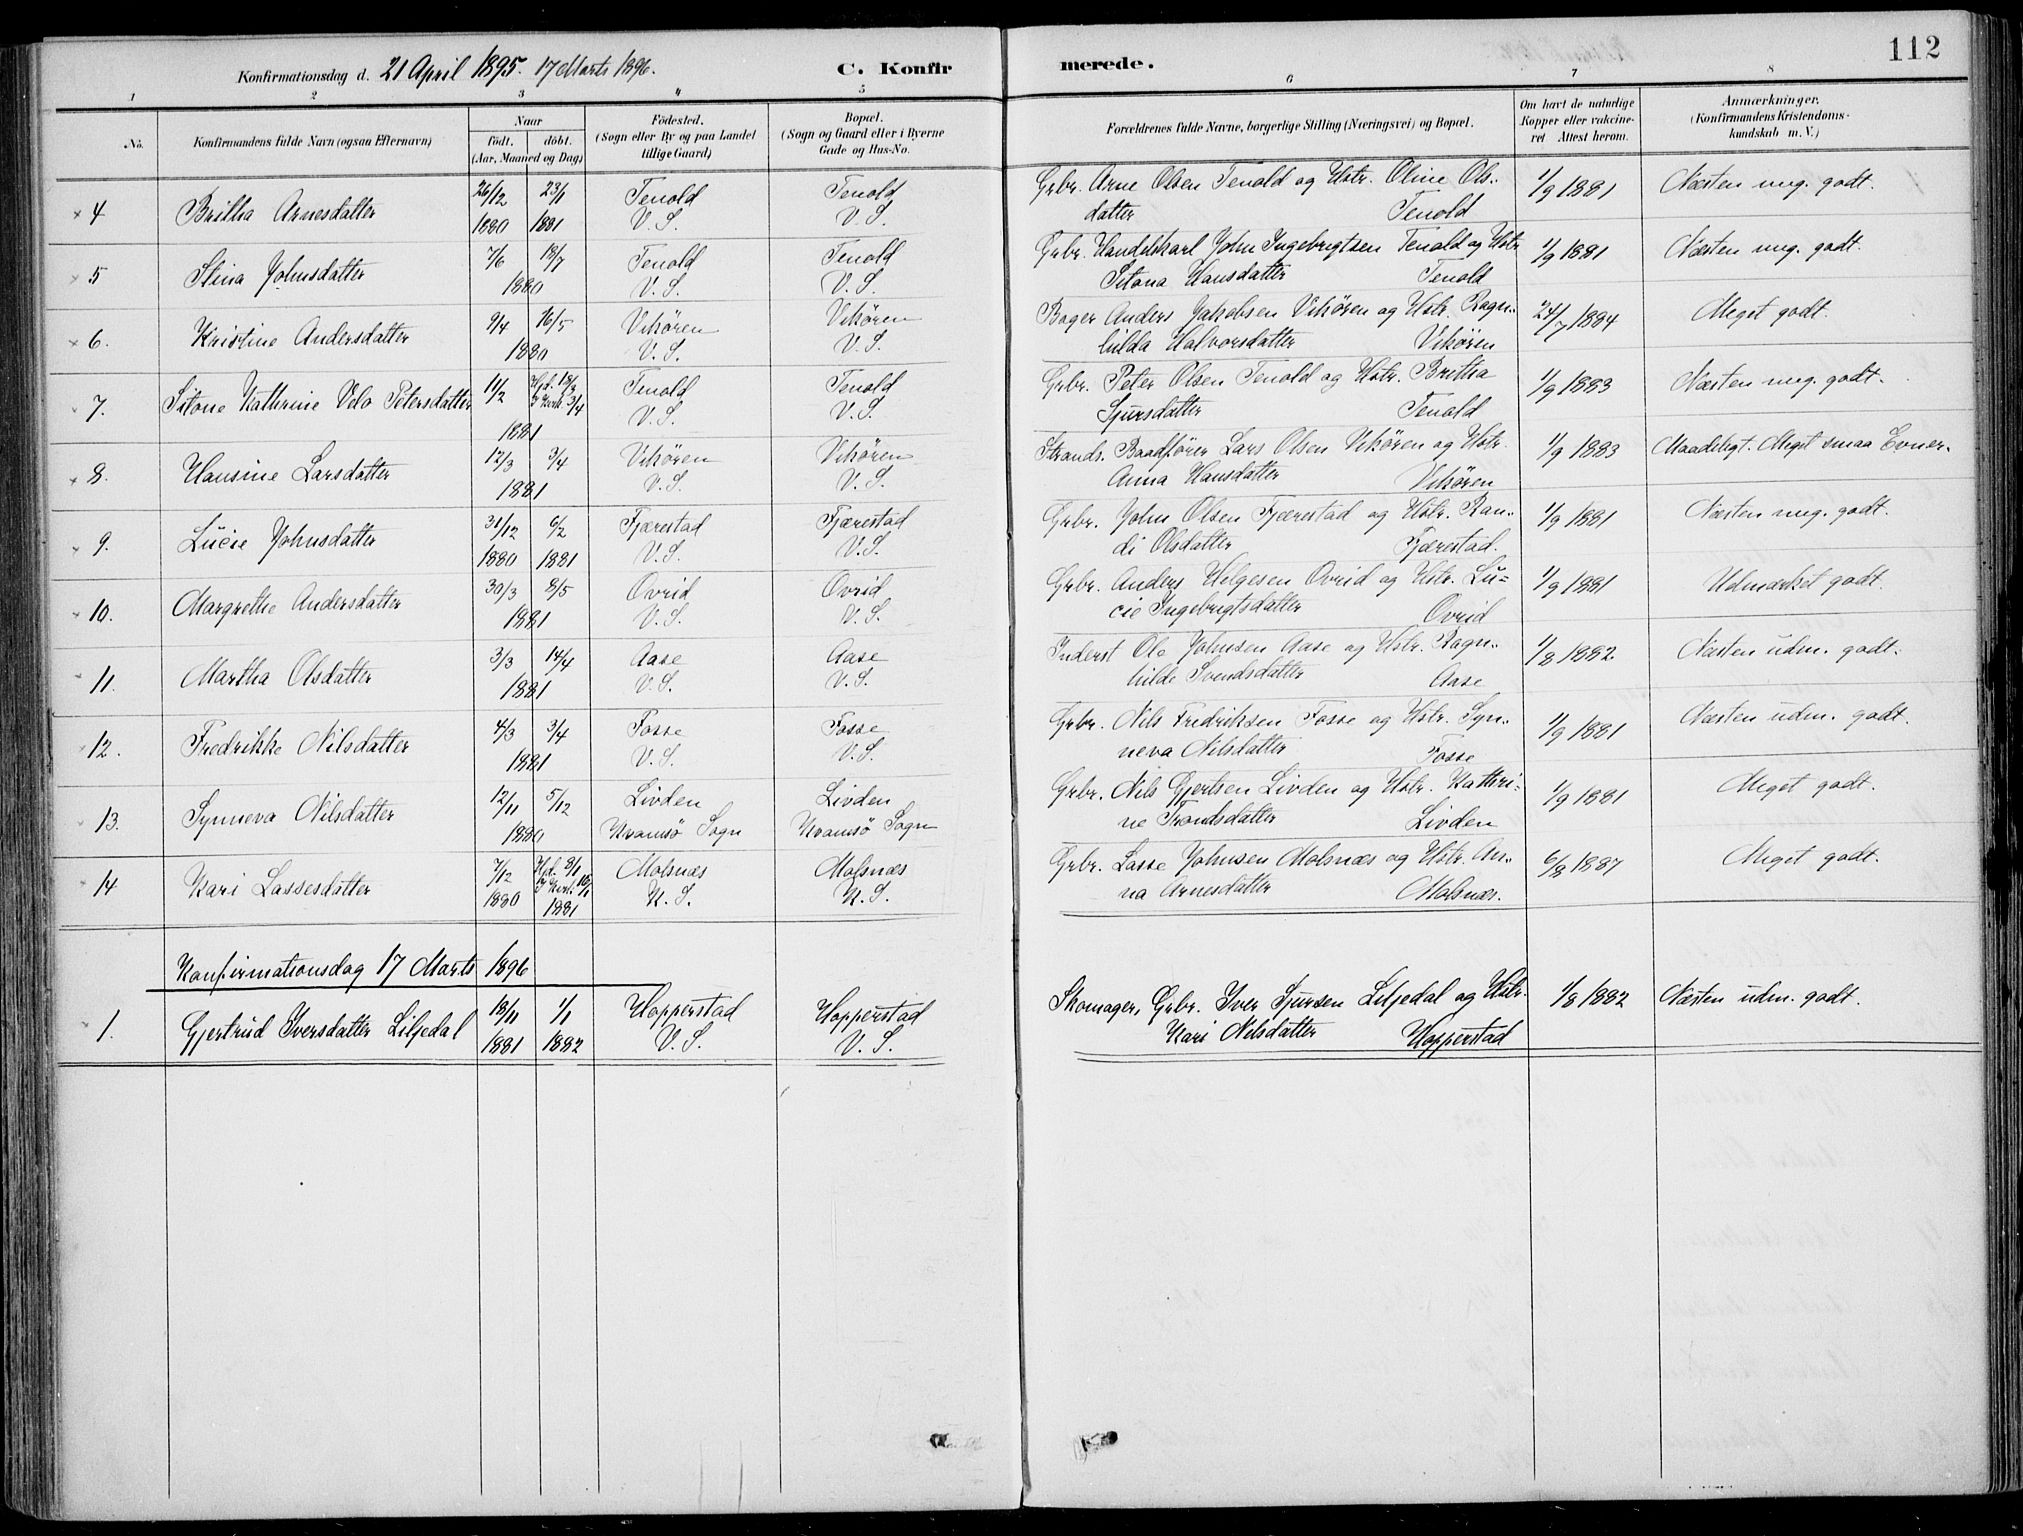 112
Konfirmationsdag d. 21 April 1895. 17 Marts 1896. C. Konfir merede.
1 2 3 4 5 6 7 8
No. Konfirmandens fulde Navn (ogsaa Efternavn) Naar födt. döbt. (Aar, Maaned og Dag) Födested. (Sogn eller By og paa Landet tillige Gaard) Bopæl. (Sogn og Gaard eller i Byerne Gade og Hus-No. Forældrenes fulde Navne, borgerlige Stilling (Næringsvei) og Bopæl. Om havt de naturlige Kopper eller vakcineret Attest herom. Anmærkninger. (Konfirmandens Kristendomskundskab m. V.)
4 Britha Arnesdatter 26/12 1880 23/1 1881 Tenold V. S. Tenold V. S. Grbr. Arne Olsen Tenold og Hstr. Oline Ols-
datter Tenold 1/9 1881 Næsten meg. godt.
5 Stina Johnsdatter 7/6 18/7 1880 Tenold V. S. Tenold V. S. Grbr. Handelskarl John Ingebrigtsen Tenold og Hstr
Sitona Hansdatter Tenold 1/9 1881 Næsten meg. godt.
6. Kristine Andersdatter 9/4 16/5 1880 Vikören V. S. Vikören V. S. Bager Anders Jakobsen Vikören og Hstr. Ragn-
hilda Halvorsdatter Vikören 24/7 1884 Meget godt.
7. Sitone Kathrine Velo Petersdatter 11/2 Hjd. 13/2 I Kirk. 3/4 1881 Tenold V. S. Tenold V. S. Grbr. Peter Olsen Tenold og Hstr. Britha
Sjursdatter Tenold 1/9 1883 Næsten meg. godt.
8. Hansine Larsdatter 12/3 3/4 1881 Vikören V. S. Vikören V. S. Strands. Baadförer Lars Olsen Vikören og Hstr.
Anna Hansdatter Vikören 1/9 1883 Maadeligt. Meget smaa Evner.
9. Lucie Johnsdatter 31/12 1880 6/2 1881 Fjærestad V. S. Fjærestad V. S. Grbr. John Olsen Fjærestad og Hstr. Ran-
di Olsdatter Fjærestad. 1/9 1881 Næsten meg. godt.
10. Margrethe Andersdatter 30/3 8/5 1881 Ovrid V. S. Ovrid V. S. Grbr. Anders Helgesen Ovrid og Hstr. Lu-
cie Ingebrigtsdatter Ovrid 1/9 1881 Udmærket godt.
11. Martha Olsdatter 3/3 14/4 1881 Aase V. S. Aase V. S. Inderst Ole Johnsen Aase og Hstr. Ragn-
hilde Svendsdatter Aase 1/8 1882. Næsten udm. godt.
12. Fredrikke Nilsdatter 4/3 3/4 1881 Fosse V. S. Fosse V. S. Grbr. Nils Fredriksen Fosse og Hstr. Syn-
neva Nilsdatter Fosse 1/9 1881 Næsten udm. godt.
13. Synneva Nilsdatter 12/11 5/12 1880 Livden Kvamsö Sogn Livden Kvamsö Sogn Grbr. Nils Gjertsen Livden og Hstr. Kathri-
ne Trondsdatter Livden 1/9 1881 Meget godt.
14 Kari Lassesdatter 7/12 1880 Hjd. 8/1 I Kirk. 16/1 1881 Molsnæs K. S. Molsnæs K. S. Grbr. Lasse Johnsen Molsnæs og Hstr. An-
na Arnesdatter Molsnæs. 6/8 1887 Meget godt.
Konfirmationsdag 17 Marts 1896
1. Gjertrud Iversdatter Liljedal 18/11 1881 1/1 1882 Hopperstad V. S. Hopperstad V. S. Skomager, Grbr. Iver Sjursen Liljedal og Hstr.
Kari Nilsdatter Hopperstad 1/8 1882 Næsten udm. godt.